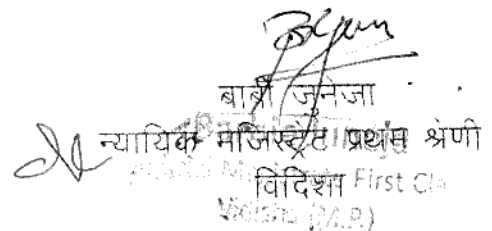 बाबी जुनेजा
न्यायिक मजिस्ट्रेट प्रथम श्रेणी
विदिशा
First Cl
Vidisha (M.P.)